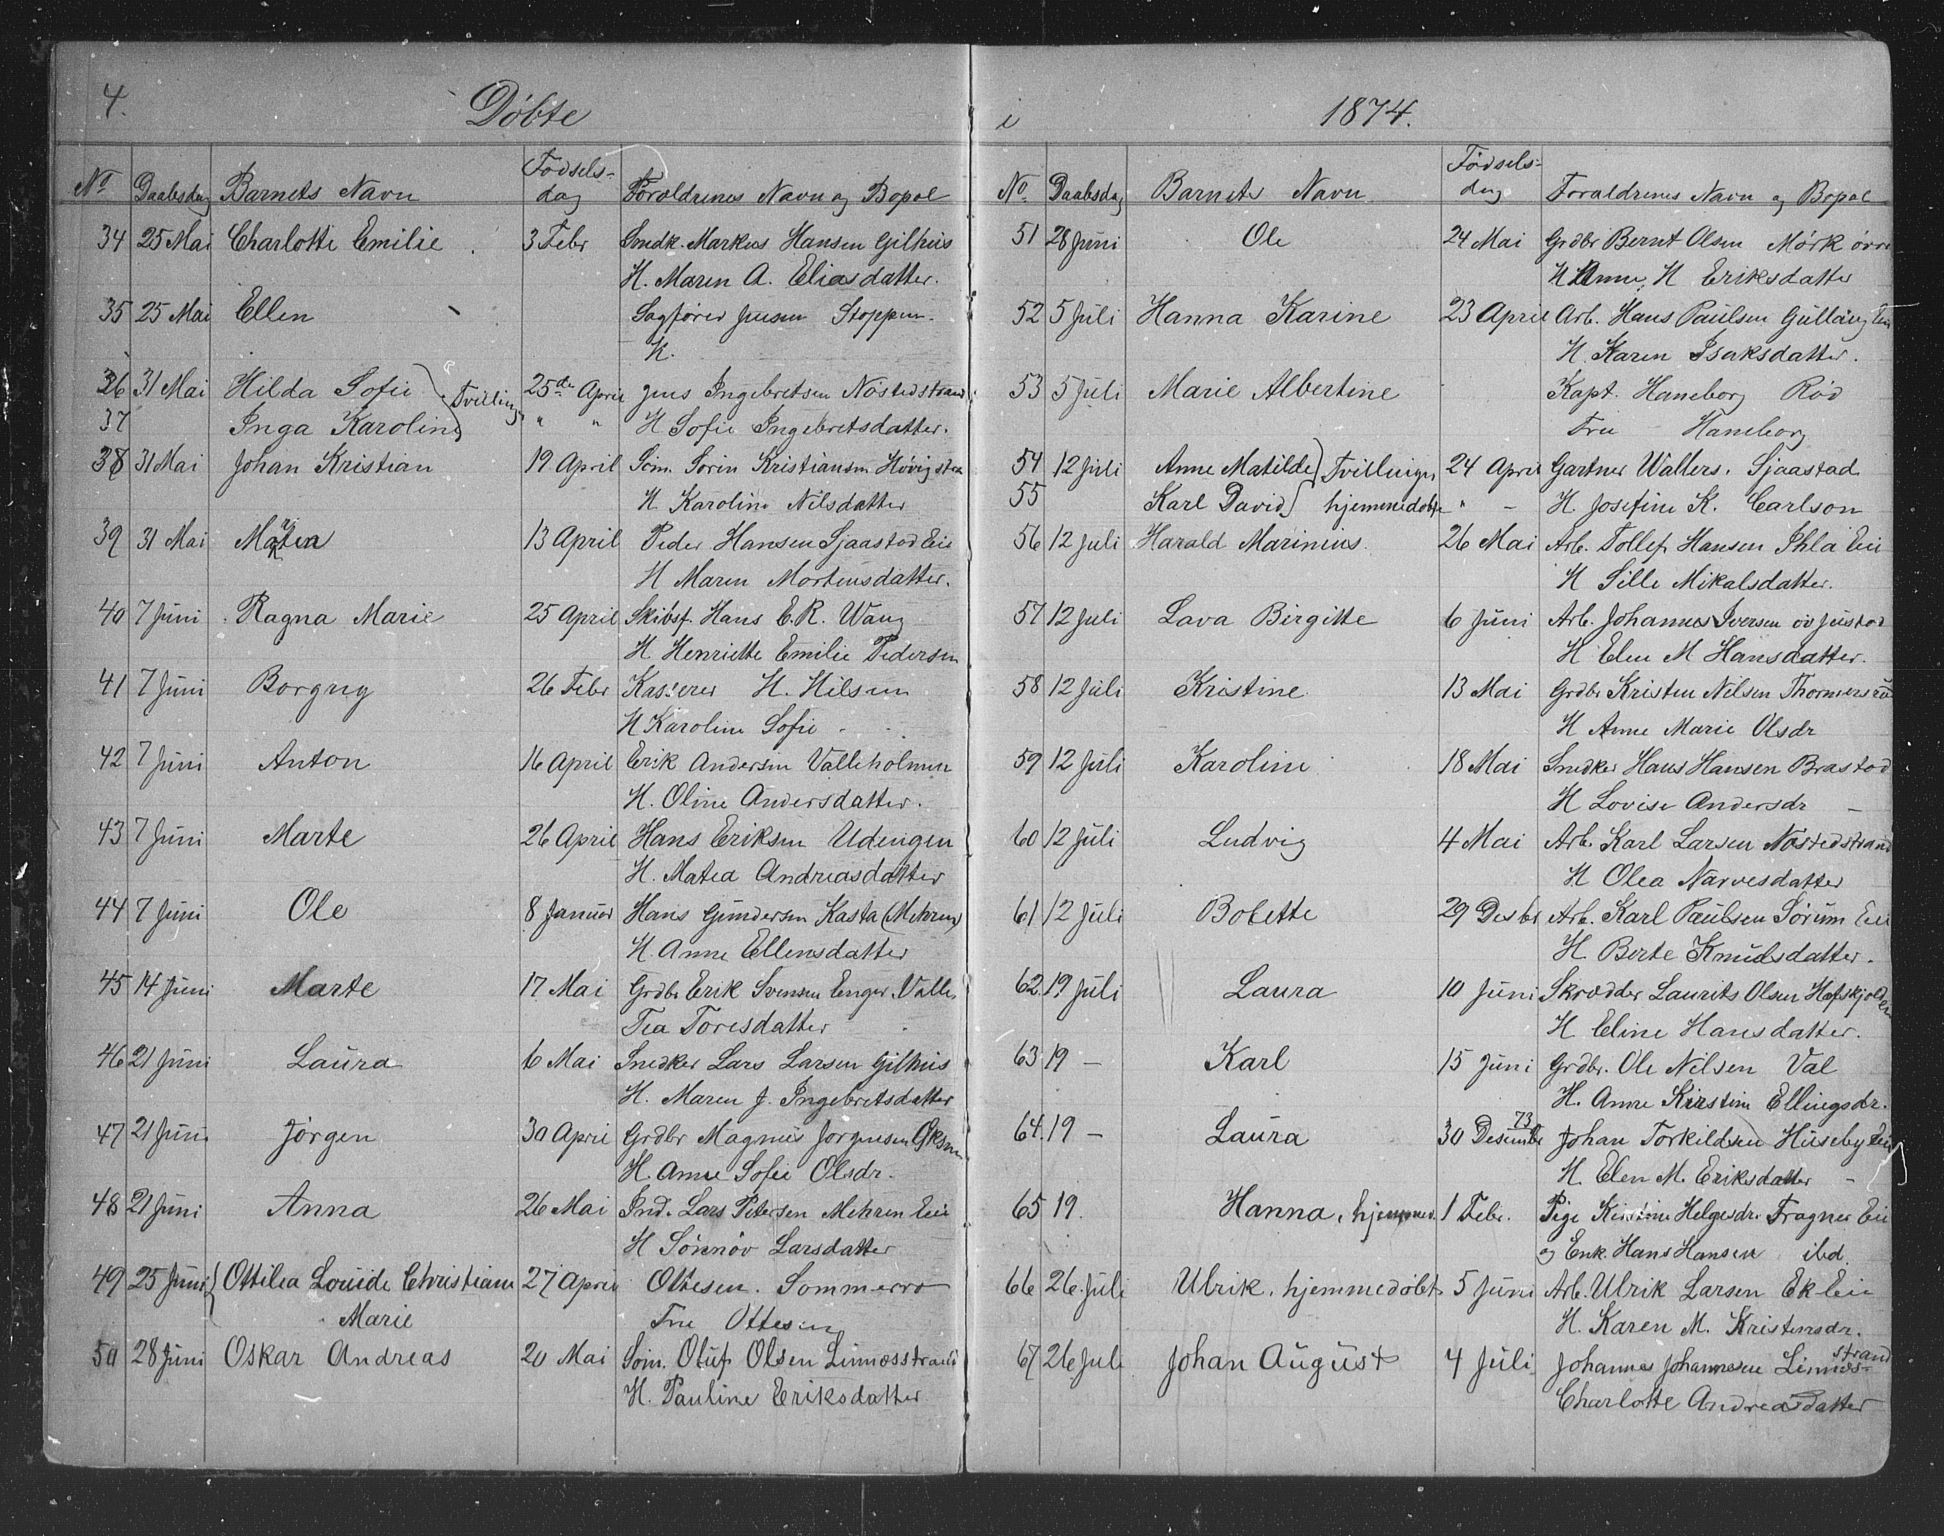 4.
Döbte
No Daabsdag Barnets Navn Fødsels-dag Forældrenes Navn og Bopæl
34 25 Mai Charlotte Emilie 3 Febr Snedk. Markus Hansen Gilhus
H. Maren A. Eliasdatter.
35 25 Mai Ellen Sagfører Stoppen.
K.
36 31 Mai Hilda Sofie Tvillinger 25de April Jens Ingebretsen Nöstedstrand
37 Inga Karoline " " H Sofie Ingebretsdatter.
38 31 Mai Johan Kristian 19 April Söm. Sörin Kristiansen
H Karoline Nilsdatter
39 31 Mai 13 April Peder Hansen Sjaastad Eie
H Maren Mortensdatter.
40 7 Juni Ragna Marie 25 April Skibsf. Hans E. R. Wang
H. Henriette Emilie Pedersen
41 7 Juni Borgny 26 Febr Kasserer H. Hilsen
H Karoline Sofie
42 7 Juni Anton 16 April Erik Andersen Valleholmen
H. Oline Andersdatter.
43 7 Juni Marte 26 April Hans Eriksen Udengen
H. Matea Andreasdatter
44 7 Juni Ole 8 Januar Hans Gundersen Kasta (Mehren)
H. Anne Ellensdatter
45 14 Juni Marte 17 Mai Grdbr Erik Svensen Enger. Valle
Tea Toresdatter
46 21 Juni Laura 6 Mai Snedker Lars Larsen Gilhus
H. Maren J. Ingebretsdatter
47 21 Juni Jörgen 30 April Grdbr Magnus Jörgensen
H. Anne Sofie Olsdr.
48 21 Juni Anna 26 Mai Ind. Lars Petersen Mehren Eie
H Sönnöv Larsdatter
49 25 Juni Ottilea Louide Christiane 27 April Ottesen. Sommerro
Marie Frue Ottesen
50 28 Juni Oskar Andreas 20 Mai Söm. Oluf Olsen Linnesstrand
H. Pauline Eriksdatter
i 1874.
No. Daabsdag Barnets Navn Fødsels-dag Forældrenes Navn og Bopæl
51 28 Juni Ole 24 Mai Grdbr Bernt Olsen Mörk övre
H Anne. H Eriksdatter
52 5 Juli Hanna Karine 23 April Arb. Hans Paulsen Gullaug Eie
H. Karen Isaksdatter.
53 5 Juli Marie Albertine Kapt. Haneborg Röd
Frue Haneborg
54 12 Juli Anne Matilde Tvillinger 24 April Gartner Wallers. Sjaastad
55 Karl David hjemmedöbte " - H. Josefine K. Carlson
56 12 Juli Harald Marinius. 26 Mai Arb. Tollef Hansen Ihla Eie
H Sille Mikalsdatter.
57 12 Juli Lava Birgitte 6 Juni Arb. Johannes Iversen öv Justad
H Elen M Hansdatter.
58 12 Juli Kristine 13 Mai Grdbr Kristen Nilsen
H Anne Marie Olsdr
59 12 Juli Karoline 18 Mai Snedker Hans Hansen Brastad
H Lovise Andersdr -
60 12 Juli Ludvig 4 Mai Arb. Karl Larsen Nöstedstrand
H Olea Narvesdatter
61 12 Juli Bolette 29 Desbr Arb. Karl Paulsen Sörum Eie
H. Berte Knudsdatter.
62. 19 Juli Laura 10 Juni Skrædder Laurits Olsen
H Eline Hansdatter.
63 19 - Karl 15 Juni Grdbr. Ole Nilsen Val
H. Anne Kirstine Ellingsdr.
64. 19 - Laura 30 Desember 73 Johan Torkildsen Huseby Eie
H. Elen M. Eriksdatter -
65 19. Hanna, hjemmed. 1 Febr. Pige Kirstine Helgesdr. Fragnes Eie
og Enk. Hans Hansen ibd.
66 26. Juli Ulrik, hjemmedöbt 5 Juni Arb. Ulrik Larsen Ek Eie
H. Karen M. Kristensdr.
67 26 Juli Johan August 4 Juli Johannes Johannesen Linnes-strand
Charlotte Andreasdatter